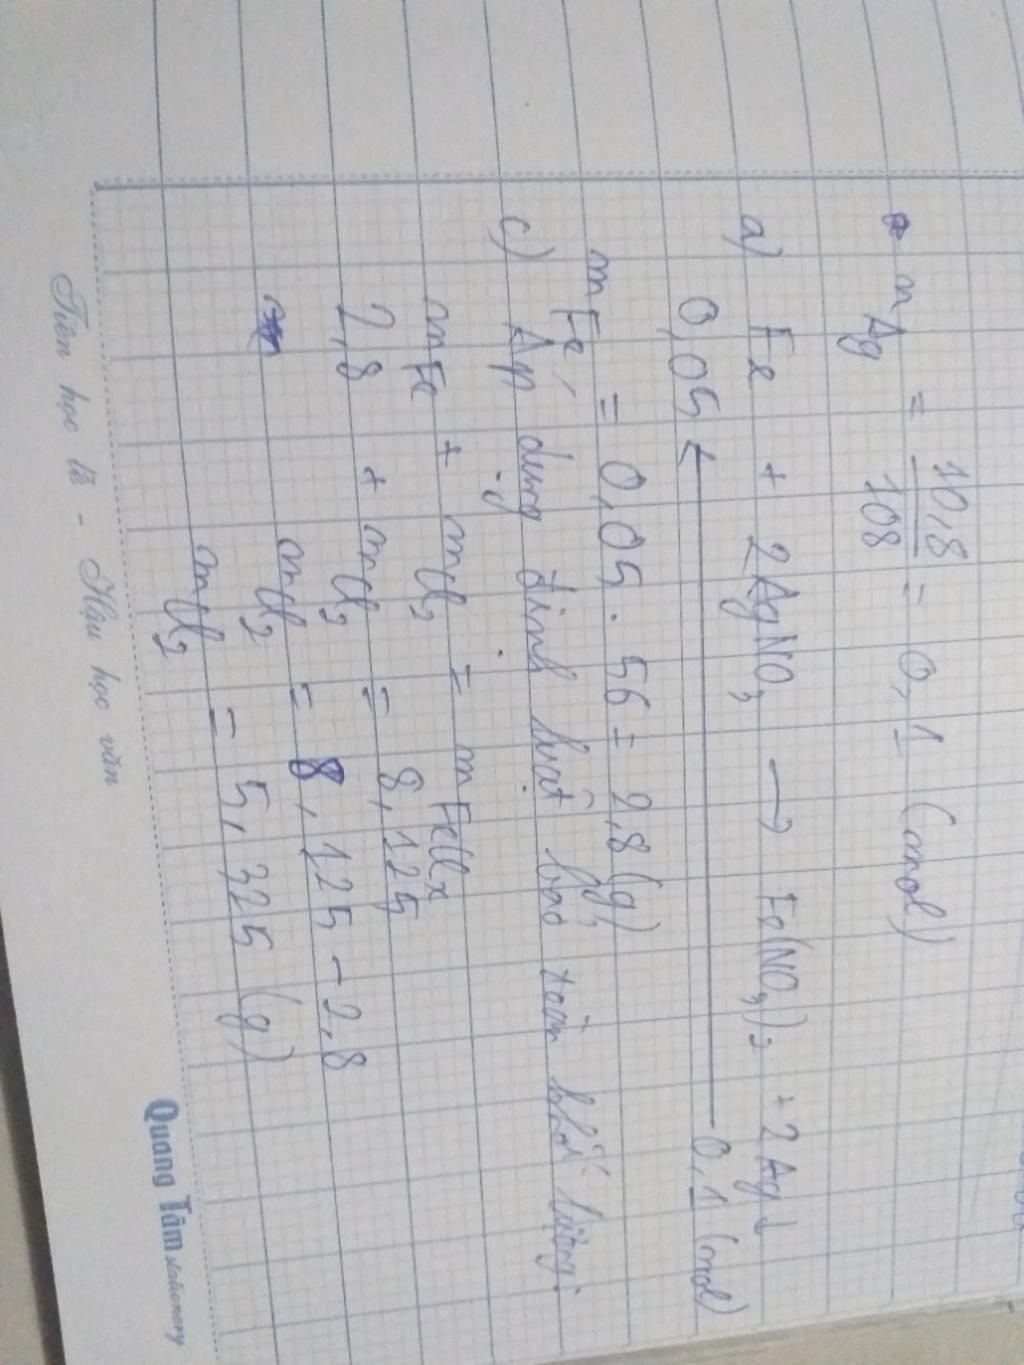 n Ag = 10,8 / 108 = 0,1 (mol)
a) Fe + 2AgNO3 → Fe(NO3)2 + 2Ag↓
0,05 ← 0,1 (mol)
mFe = 0,05 . 56 = 2,8 (g)
c) Áp dụng định luật bảo toàn khối lượng:
mFe + mCl2 = mFeClx
2,8 + mCl2 = 8,125
mCl2 = 8,125 - 2,8
mCl2 = 5,325 (g)
Tiên học lễ - Hậu học văn
Quang Tâm stationery